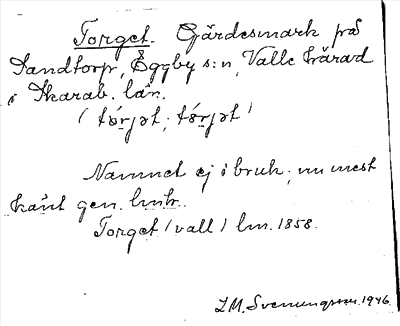 Torget. Gärdesmark på
Sandtorp, Eggby s:n, Valle härad
i Skarab. län.
(tórjət; tórjət)
Namnet ej i bruk; nu mest
känt gen. lmh.
Torget (vall) lm. 1858.
I. M. Svenungsson 1946.